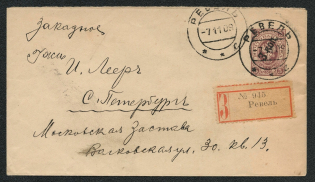 Заказное
РЕВЕЛЬ
-7.11.09
РЕВЕЛЬ
Г-жа
И. Лееръ
С. Петербургъ
№ 945
Ревель
Московская застава
Волковская ул. 30. кв. 13.